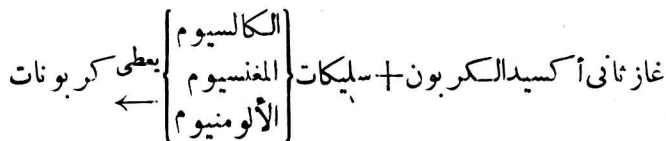 غاز ثانى أكسيد الكربون + سليكات { الكالسيوم
المغنسيوم
الألومنيوم } يعطى ← كربونات